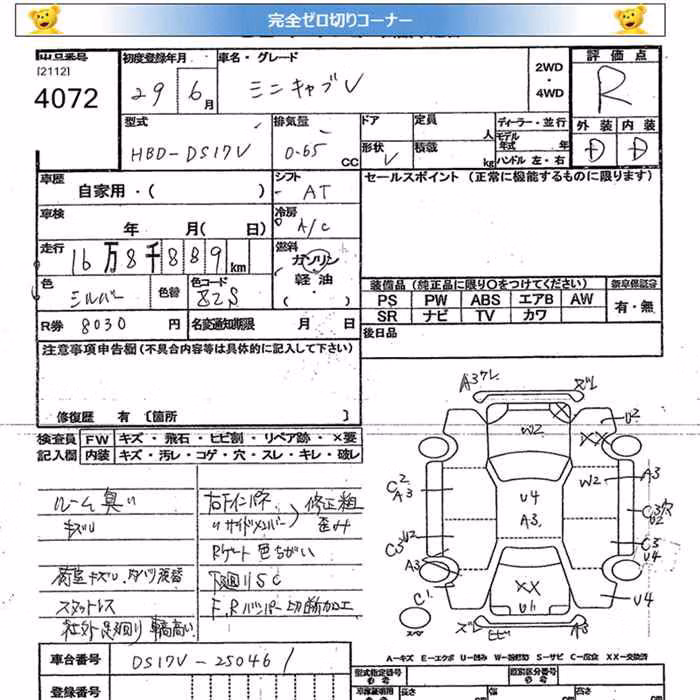 完全ゼロ切りコーナー
出品番号 初度登録年月 車名・グレード 評価点
[2112]
4072 29 6月 ミニキャブV 2WD・4WD R
型式 排気量 ドア 定員 人 ディーラー・並行 外装 内装
HBD-DS17V 0.65 CC 形状 V 積載 kg モデル年式 年 ハンドル 左・右 D D
車歴 自家用・( ) シフト AT セールスポイント (正常に機能するものに限ります)
車検 年 月( 日) 冷房 A/C
走行 16万8千889km 燃料 ガソリン・軽油・( )
色 シルバー 色替 色コード 装備品 (純正品に限り○をつけてください) 新車保証書
PS PW ABS エアB AW 有・無
SR ナビ TV カワ
R券 8030 円 名変通知期限 月 日 後日品
注意事項申告欄 (不具合内容等は具体的に記入して下さい)
修復歴 有 〔箇所 〕
検査員 FW キズ・飛石・ヒビ割・リペア跡・×要
記入欄 内装 キズ・汚レ・コゲ・穴・スレ・キレ・破レ
ルーム臭い
キズ
スタットレス
右Fインパネ
〃サイドメンバー
修正粗
歪み
Rゲート色ちがい
下廻りSC
F,Rバンパー切断加工
A3ワレ ズレ
W2 U2
XX
C2 A3 W2 A3
U4 C3穴 U2
A3
U2 C3 C3 U4
A3
C1 XX U4
U1
ズレ ヒビ A3
A-キズ E-エクボ U-凹み W-補修跡 S-サビ C-腐食 XX-交換済
車台番号 DS17V-250461
登録番号
型式指定番号 類別区分番号
長さ 幅 高さ